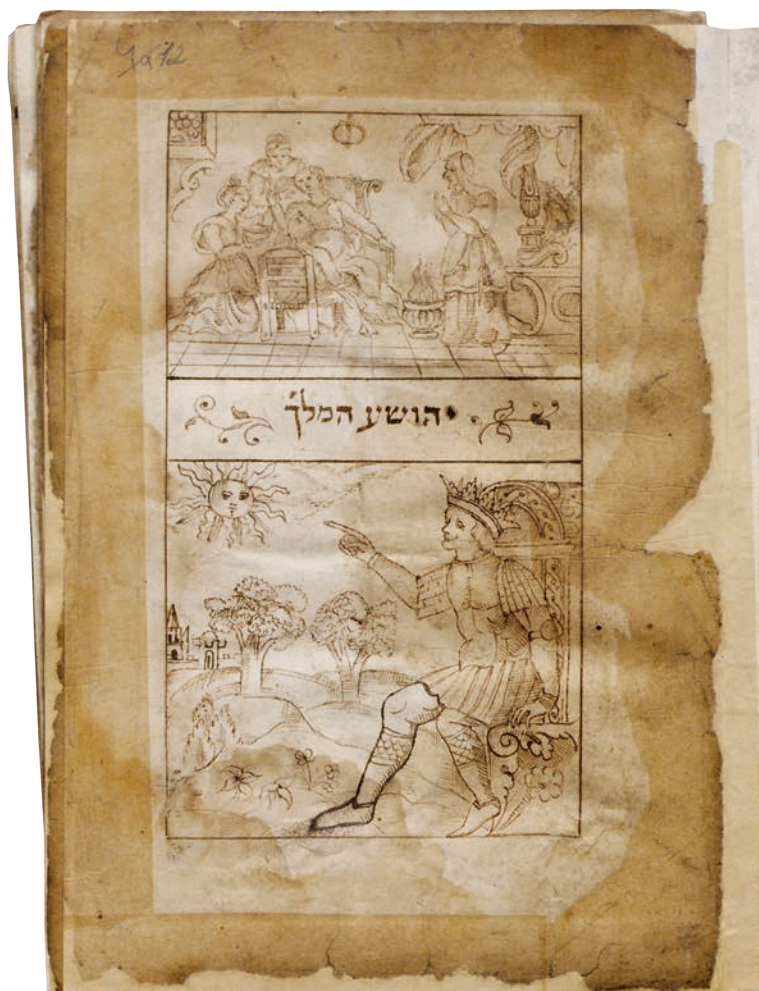 יהושע המלך